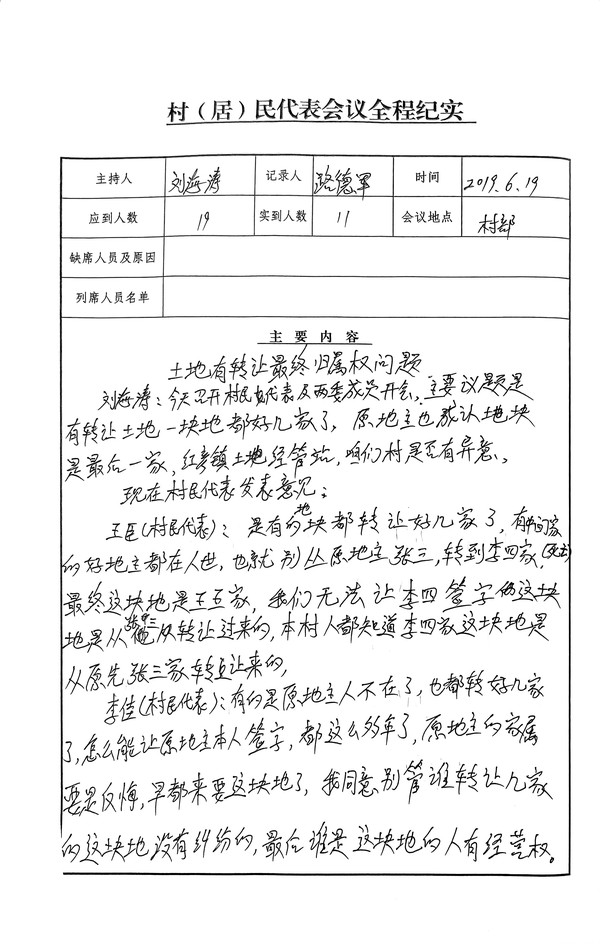 村（居）民代表会议全程纪实
主持人 刘海涛 记录人 路德军 时间 2019.6.19
应到人数 19 实到人数 11 会议地点 村部
缺席人员及原因
列席人员名单
主要内容
土地有转让最终归属权问题
刘海涛：今天召开村民代表及两委成员开会，主要议题是
有转让土地一块地都好几家了，原地主也承认地块
是最后一家，红彦镇土地经管站，咱们村是否有异意。
现在村民代表发表意见：
王臣（村民代表）：是有的地块都转让好几家了，有中间家
的好地主都在人世，也就别从原地主张三，转到李四家，（死亡）
最终这块地是王五家，我们无法让李四签字 这块
地是从 转让过来的，本村人都知道李四家这块地是
从原先张三家转让来的，
李佳（村民代表）：有的是原地主人不在了，也都转好几家
了，怎么能让原地主本人签字，都这么多年了，原地主的家属
要是反悔，早都来要这块地了，我同意别管谁转让几家
的这块地没有纠纷的，最后谁是这块地的人有经营权。